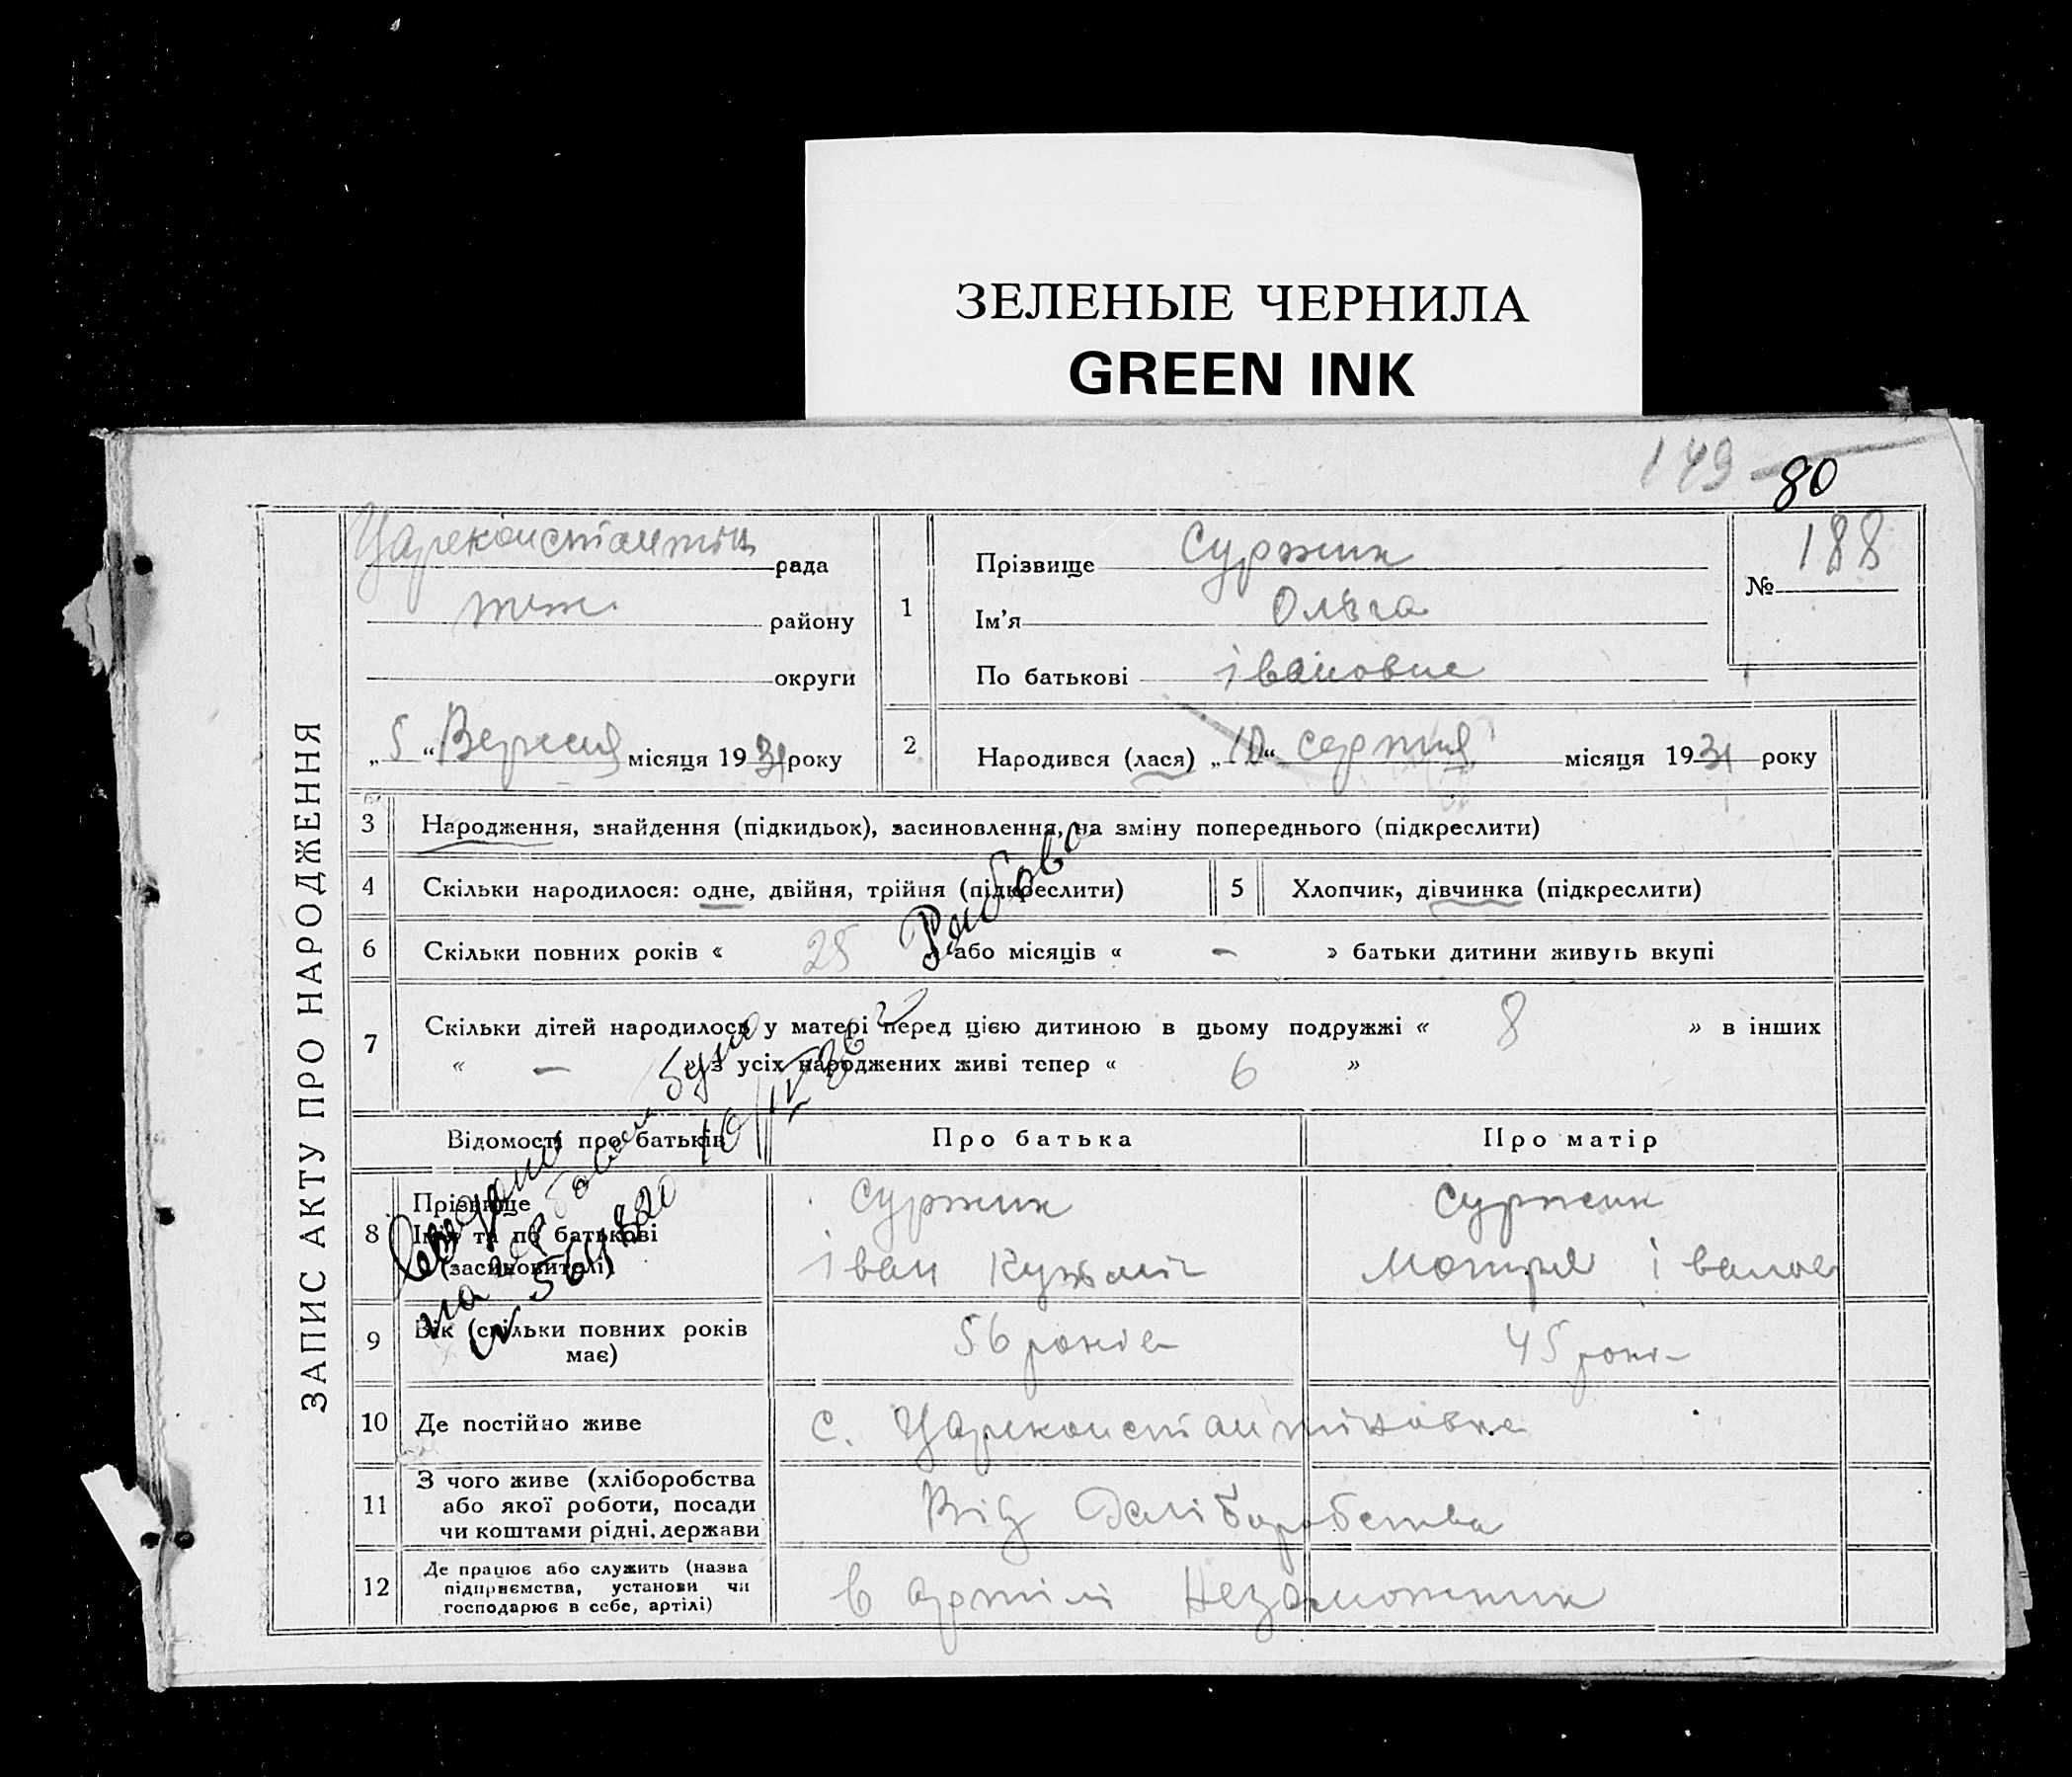 ЗЕЛЕНЫЕ ЧЕРНИЛА
GREEN INK
149 80
ЗАПИС АКТУ ПРО НАРОДЖЕННЯ
Цареконстантин рада
теж району
округи
„5“ Вересня місяця 1931 року
1
Прізвище Суржик
Ім'я Ольга
По батькові івановне
№ 188
2 Народився (лася) „10“ серпня місяця 1931 року
3 Народження, знайдення (підкидьок), засиновлення, на зміну попереднього (підкреслити)
4 Скільки народилося: одне, двійня, трійня (підкреслити) 5 Хлопчик, дівчинка (підкреслити)
6 Скільки повних років « 25 » або місяців « — » батьки дитини живуть вкупі
7 Скільки дітей народилося у матері перед цією дитиною в цьому подружжі « 8 » в інших
« — » з усіх народжених живі тепер « 6 »
Відомості про батьків Про батька Про матір
8 Прізвище Суржик Суржик
Ім'я та по батькові іван Кузьміч Мотря іванов
(засиновителі)
9 Вік (скільки повних років має) 56 років 45 рокі
10 Де постійно живе с. Цареконстантиновка
11 З чого живе (хліборобства
або якої роботи, посади
чи коштами рідні, держави Від
12 Де працює або служить (назва
підприємства, установи чи
господарює в себе, артілі) в артілі Незаможник